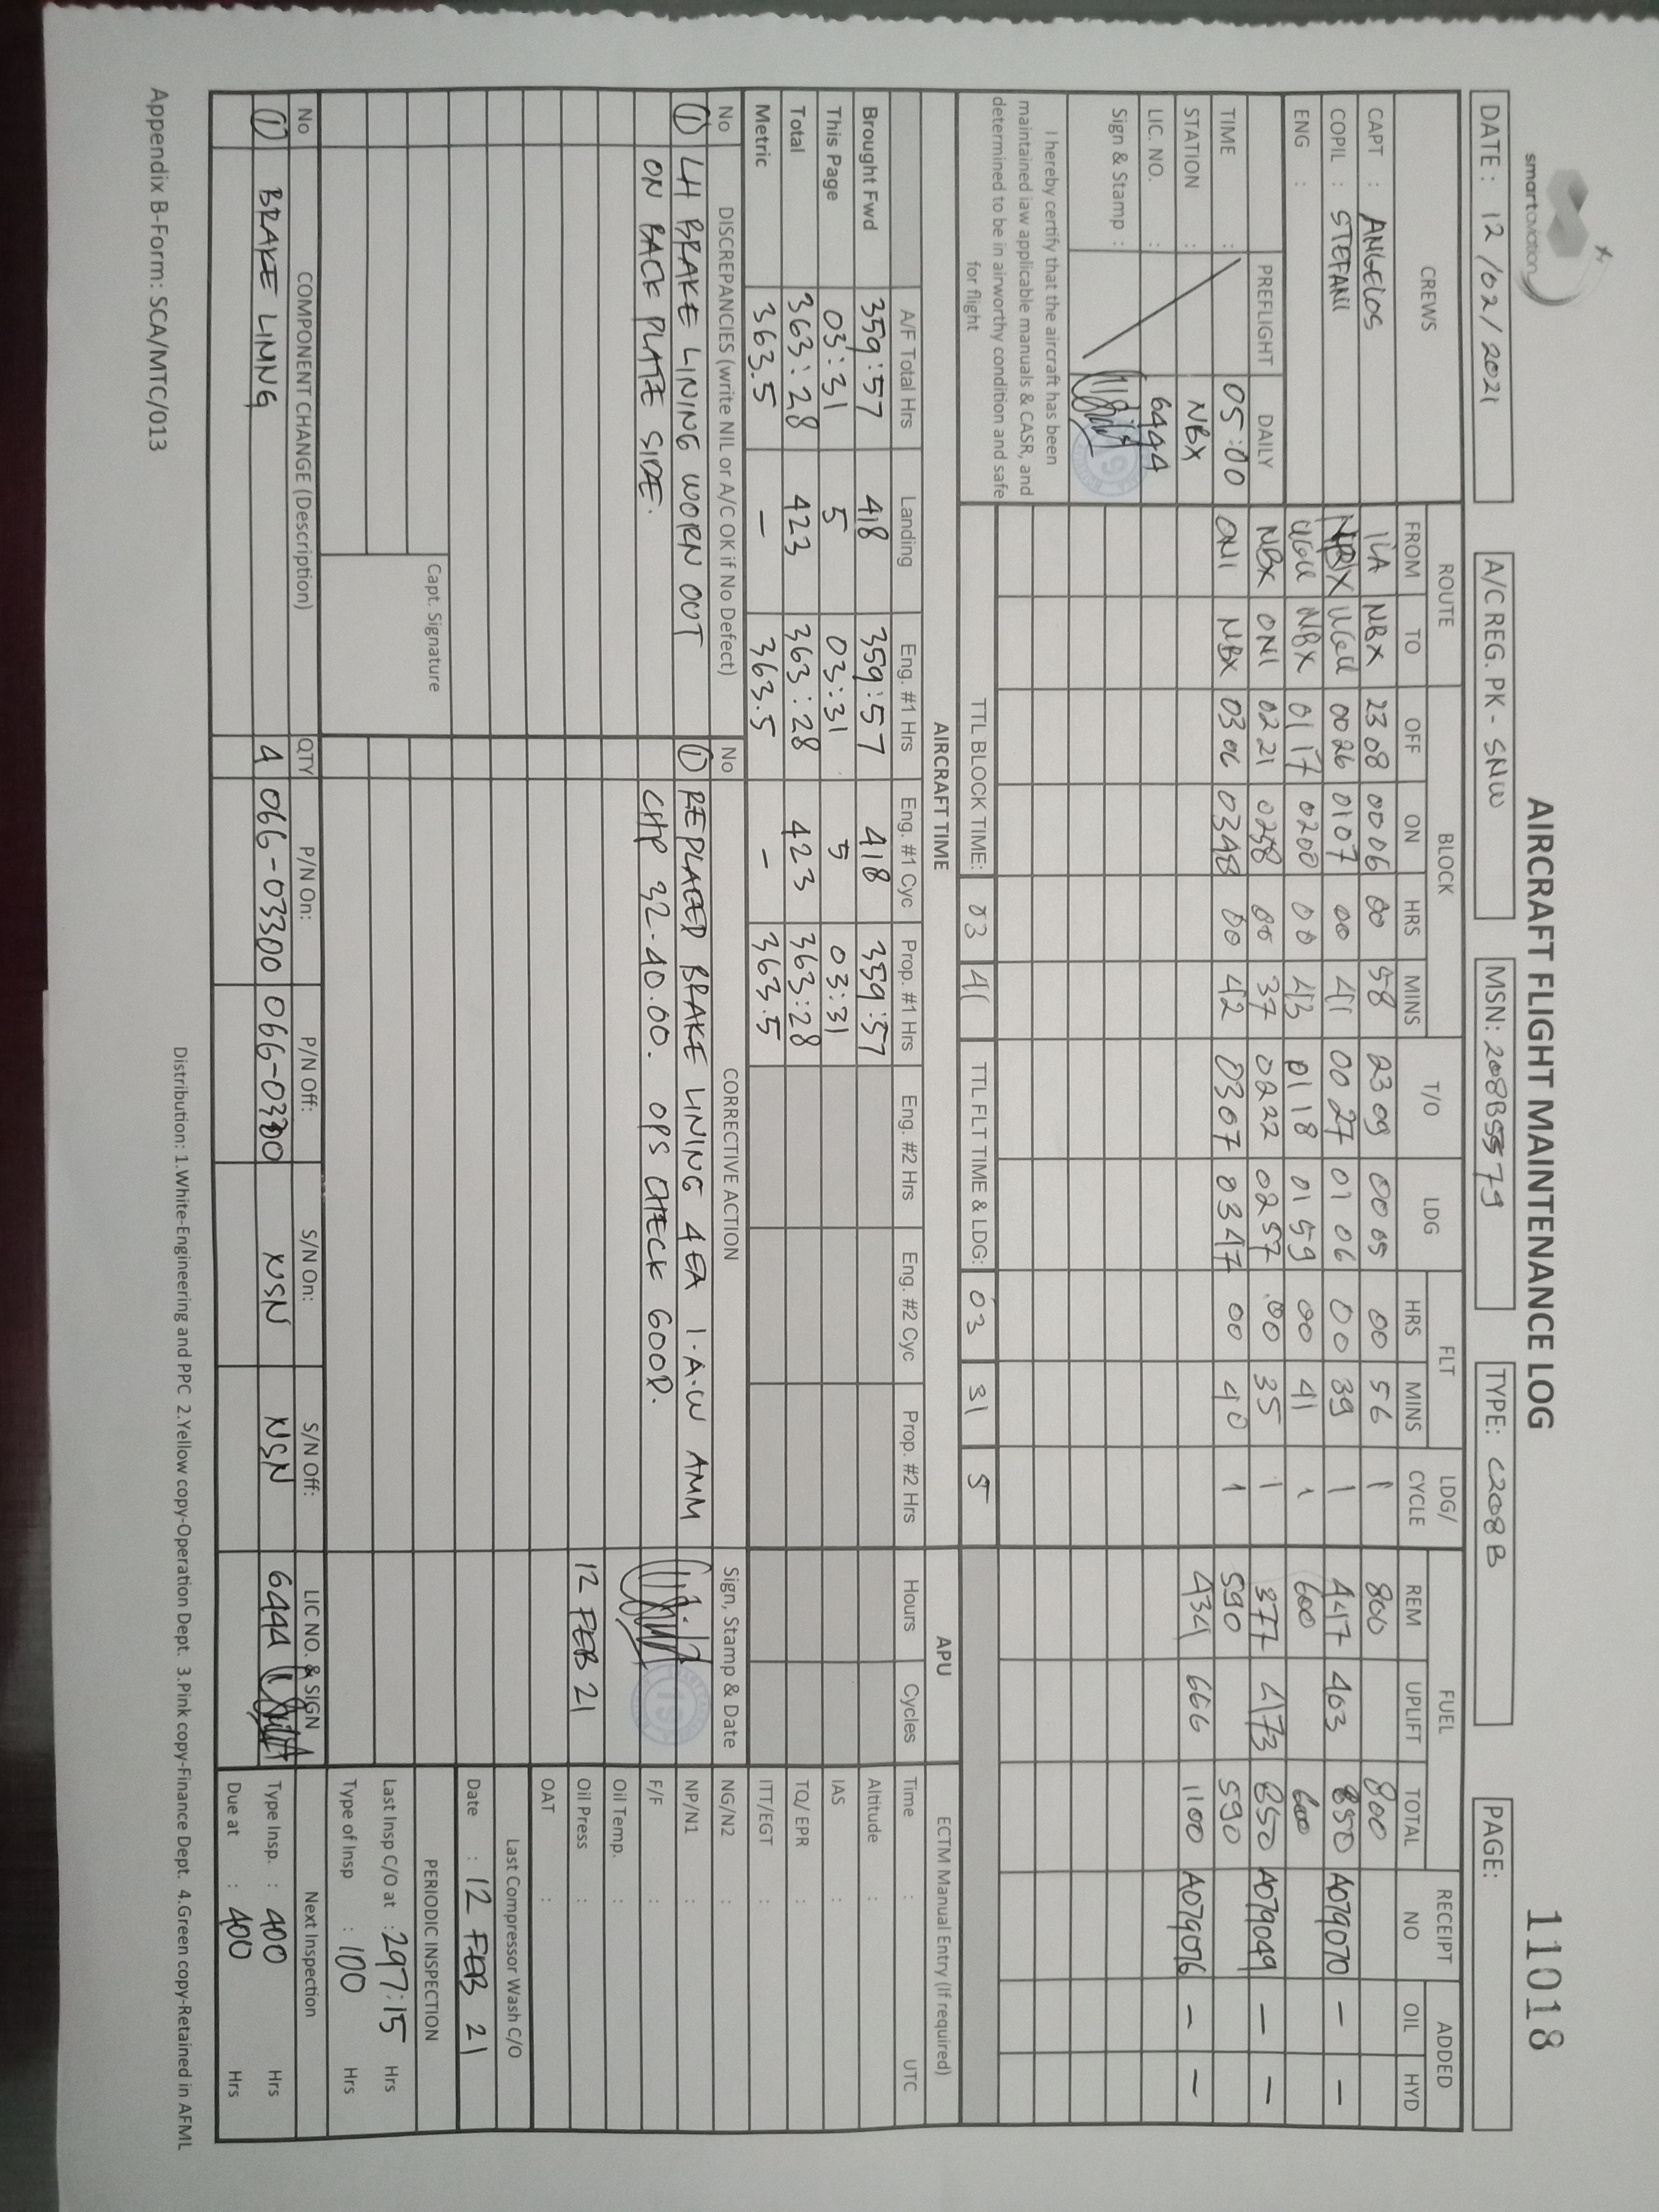 smartaviation
AIRCRAFT FLIGHT MAINTENANCE LOG
11018
DATE : 12/02/2021
A/C REG. PK - SNW
MSN: 208B5579
TYPE: C208B
PAGE:
CREWS ROUTE BLOCK T/O LDG FLT LDG/ CYCLE FUEL RECEIPT NO ADDED
FROM TO OFF ON HRS MINS HRS MINS REM UPLIFT TOTAL OIL HYD
CAPT : ANGELOS ILA NBX 2308 0006 00 58 2309 0005 00 56 1 800 800
COPIL : STEFANI NBX UGU 0026 0107 00 41 0027 0106 00 39 1 447 403 850 A079070 - -
ENG : UGU NBX 0117 0200 00 43 0118 0159 00 41 1 600 600
PREFLIGHT DAILY NBX ONI 0221 0258 00 37 0222 0257 00 35 1 377 473 850 A079049 - -
TIME : 05:00 ONI NBX 0306 0348 00 42 0307 0347 00 40 1 590 590
STATION : NBX 434 666 1100 A079076 - -
LIC. NO. : 6444
Sign & Stamp :
I hereby certify that the aircraft has been
maintained iaw applicable manuals & CASR, and
determined to be in airworthy condition and safe
for flight
TTL BLOCK TIME: 03 41 TTL FLT TIME & LDG: 03 31 5
AIRCRAFT TIME APU ECTM Manual Entry (If required)
A/F Total Hrs Landing Eng. #1 Hrs Eng. #1 Cyc Prop. #1 Hrs Eng. #2 Hrs Eng. #2 Cyc Prop. #2 Hrs Hours Cycles Time : UTC
Brought Fwd 359:57 418 359:57 418 359:57 Altitude :
This Page 03:31 5 03:31 5 03:31 IAS :
Total 363:28 423 363:28 423 363:28 TQ/ EPR :
Metric 363.5 - 363.5 - 363.5 ITT/EGT :
No DISCREPANCIES (write NIL or A/C OK if No Defect) No CORRECTIVE ACTION Sign, Stamp & Date NG/N2 :
① LH BRAKE LINING WORN OUT ① REPLACED BRAKE LINING 4EA I.A.W AMM NP/N1 :
ON BACK PLATE SIDE. CHP 32-40.00. OPS CHECK GOOD. F/F :
Oil Temp. :
12 FEB 21 Oil Press :
OAT :
Last Compressor Wash C/O
Date : 12 FEB 21
Capt. Signature
PERIODIC INSPECTION
Last Insp C/O at : 297:15 Hrs
Type of Insp : 100 Hrs
No COMPONENT CHANGE (Description) QTY P/N On: P/N Off: S/N On: S/N Off: LIC NO. & SIGN Next Inspection
① BRAKE LINING 4 066-03300 066-03300 NSN NSN 6444 Type Insp. : 400 Hrs
Due at : 400 Hrs
Distribution: 1.White-Engineering and PPC 2.Yellow copy-Operation Dept. 3.Pink copy-Finance Dept. 4.Green copy-Retained in AFML
Appendix B-Form: SCA/MTC/013